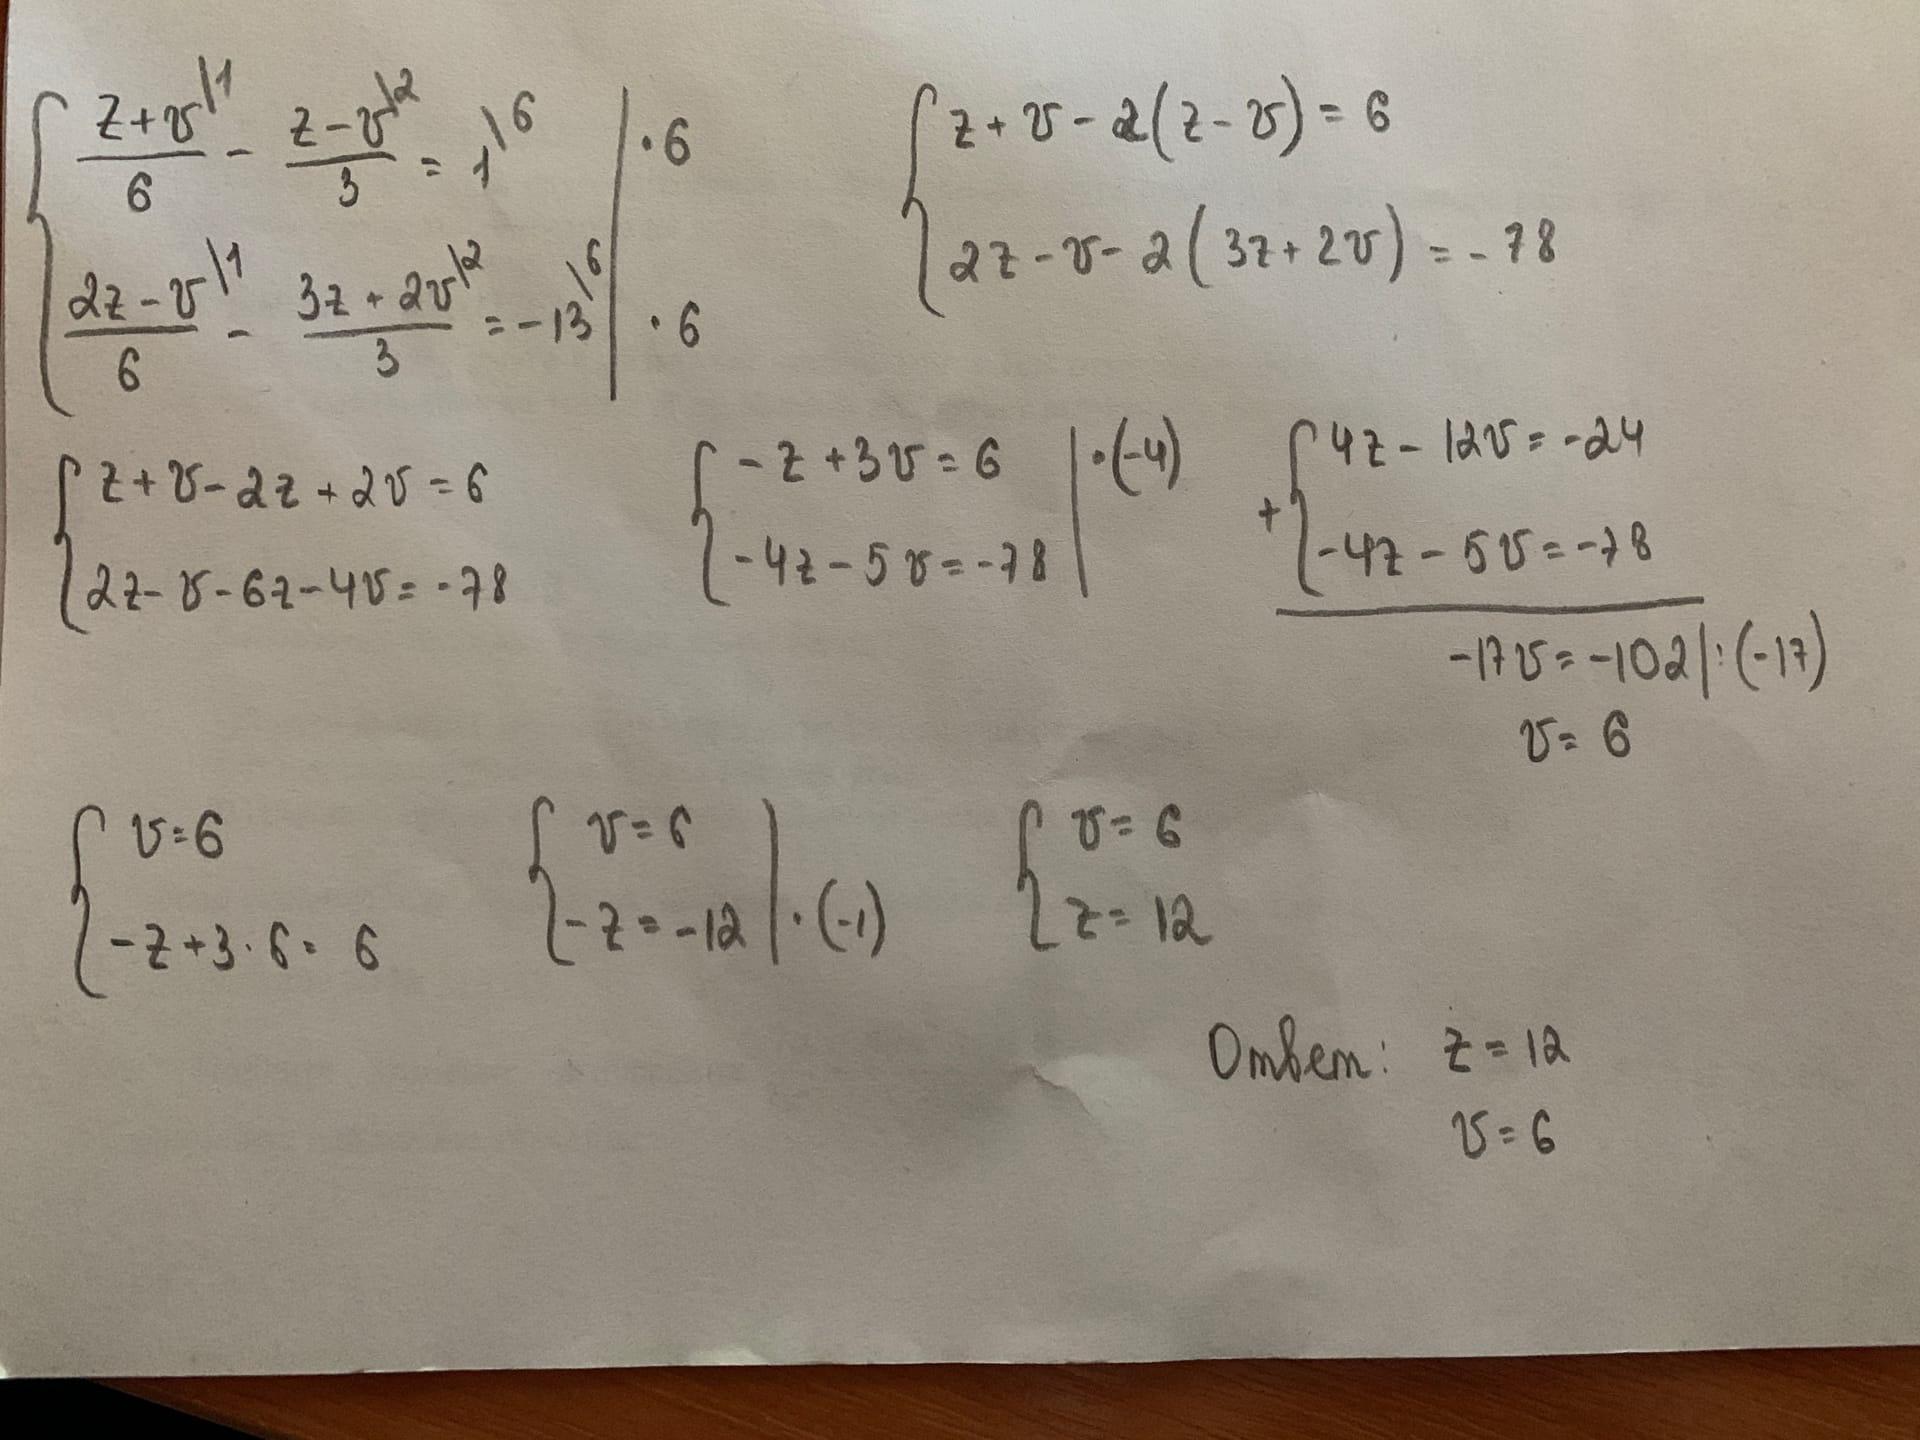 z+v\1/6 - z-v\2/3 = 1\6 | ·6
2z-v\1/6 - 3z+2v\2/3 = -13\6 | ·6
z+v-2(z-v)=6
2z-v-2(3z+2v)=-78
z+v-2z+2v=6
2z-v-6z-4v=-78
-z+3v=6 | ·(-4)
-4z-5v=-78
+ 4z-12v=-24
-4z-5v=-78
-17v=-102|:(-17)
v=6
v=6
-z+3·6=6
v=6
-z=-12 | ·(-1)
v=6
z=12
Ответ: z=12
v=6